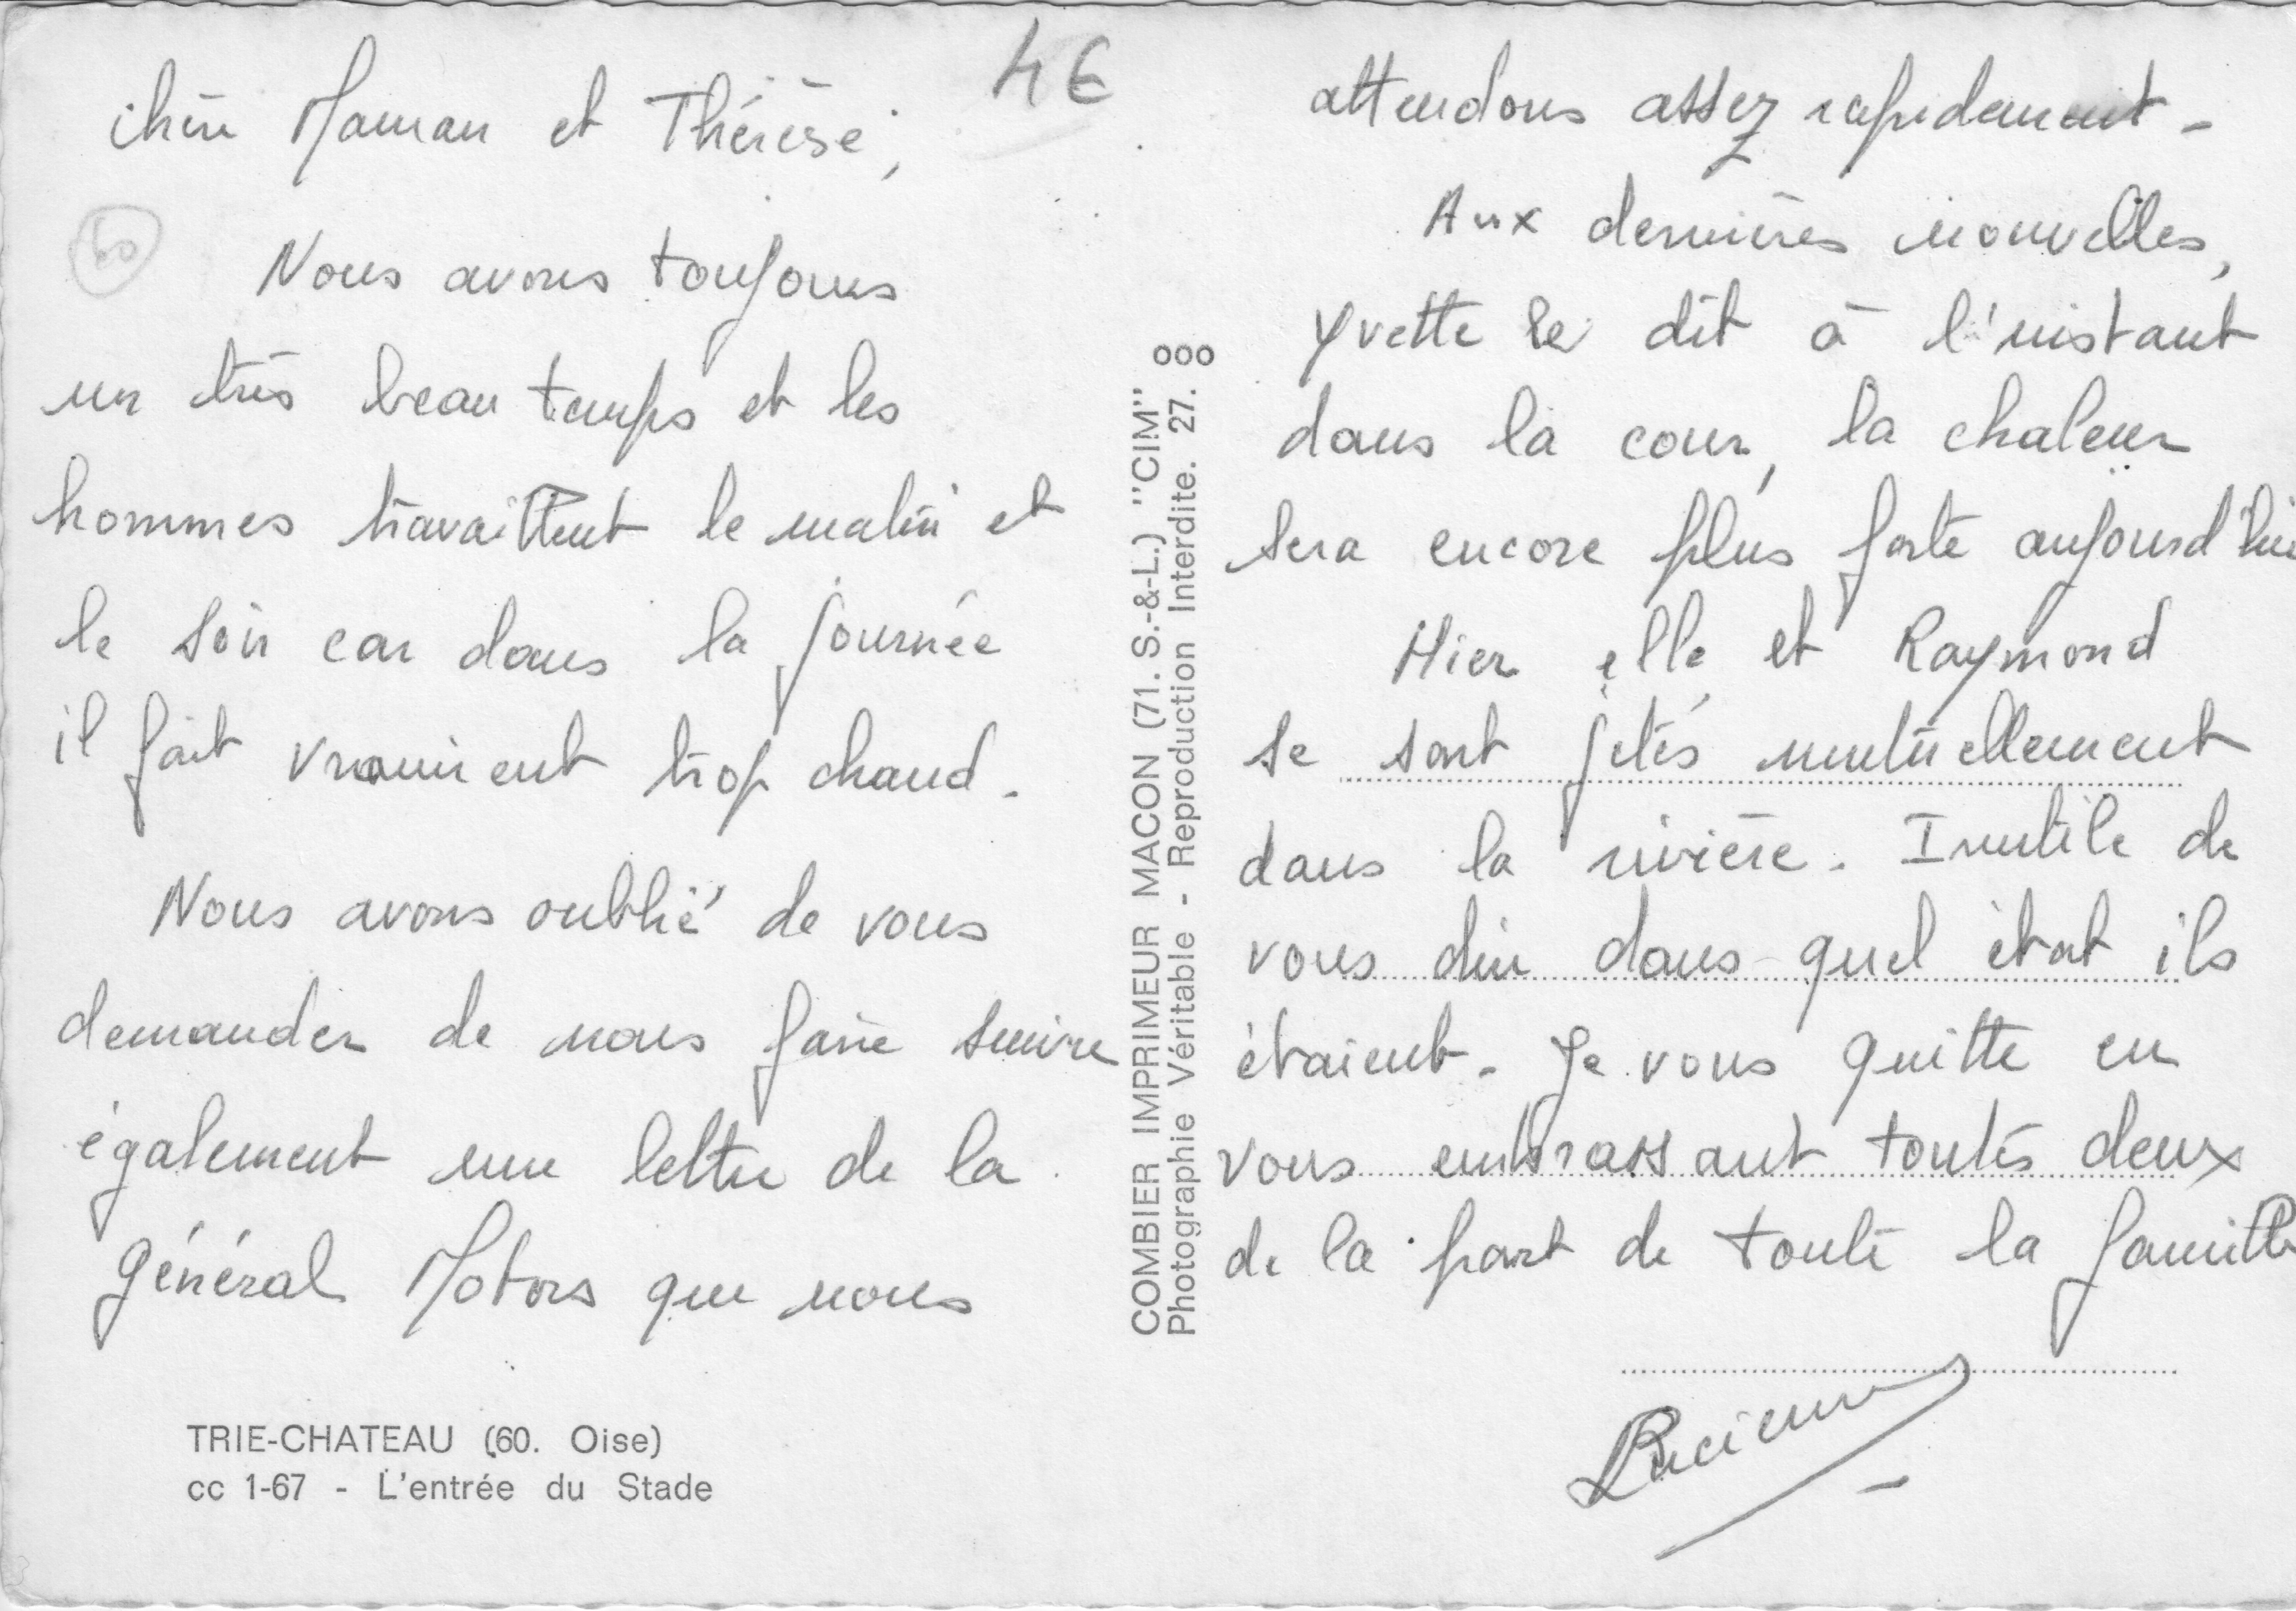 Chère Maman et Thérèse,
4€
60
Nous avons toujours
un très beau temps et les
hommes travaillent le matin et
le soir car dans la journée
il fait vraiment trop chaud.
Nous avons oublié de vous
demander de nous faire suivre
également une lettre de la
Général Motors que nous
TRIE-CHATEAU (60. Oise)
cc 1-67 - L'entrée du Stade
COMBIER IMPRIMEUR MACON (71. S.-&-L.) "CIM"
Photographie Véritable - Reproduction Interdite. 27.
attendons assez rapidement -
Aux dernières nouvelles,
Yvette le dit à l'instant
dans la cour, la chaleur
sera encore plus forte aujourd'hui
Hier elle et Raymond
se sont jetés mutuellement
dans la rivière. Inutile de
vous dire dans quel état ils
étaient. Je vous quitte en
vous embrassant toutes deux
de la part de toute la famille
Lucienne